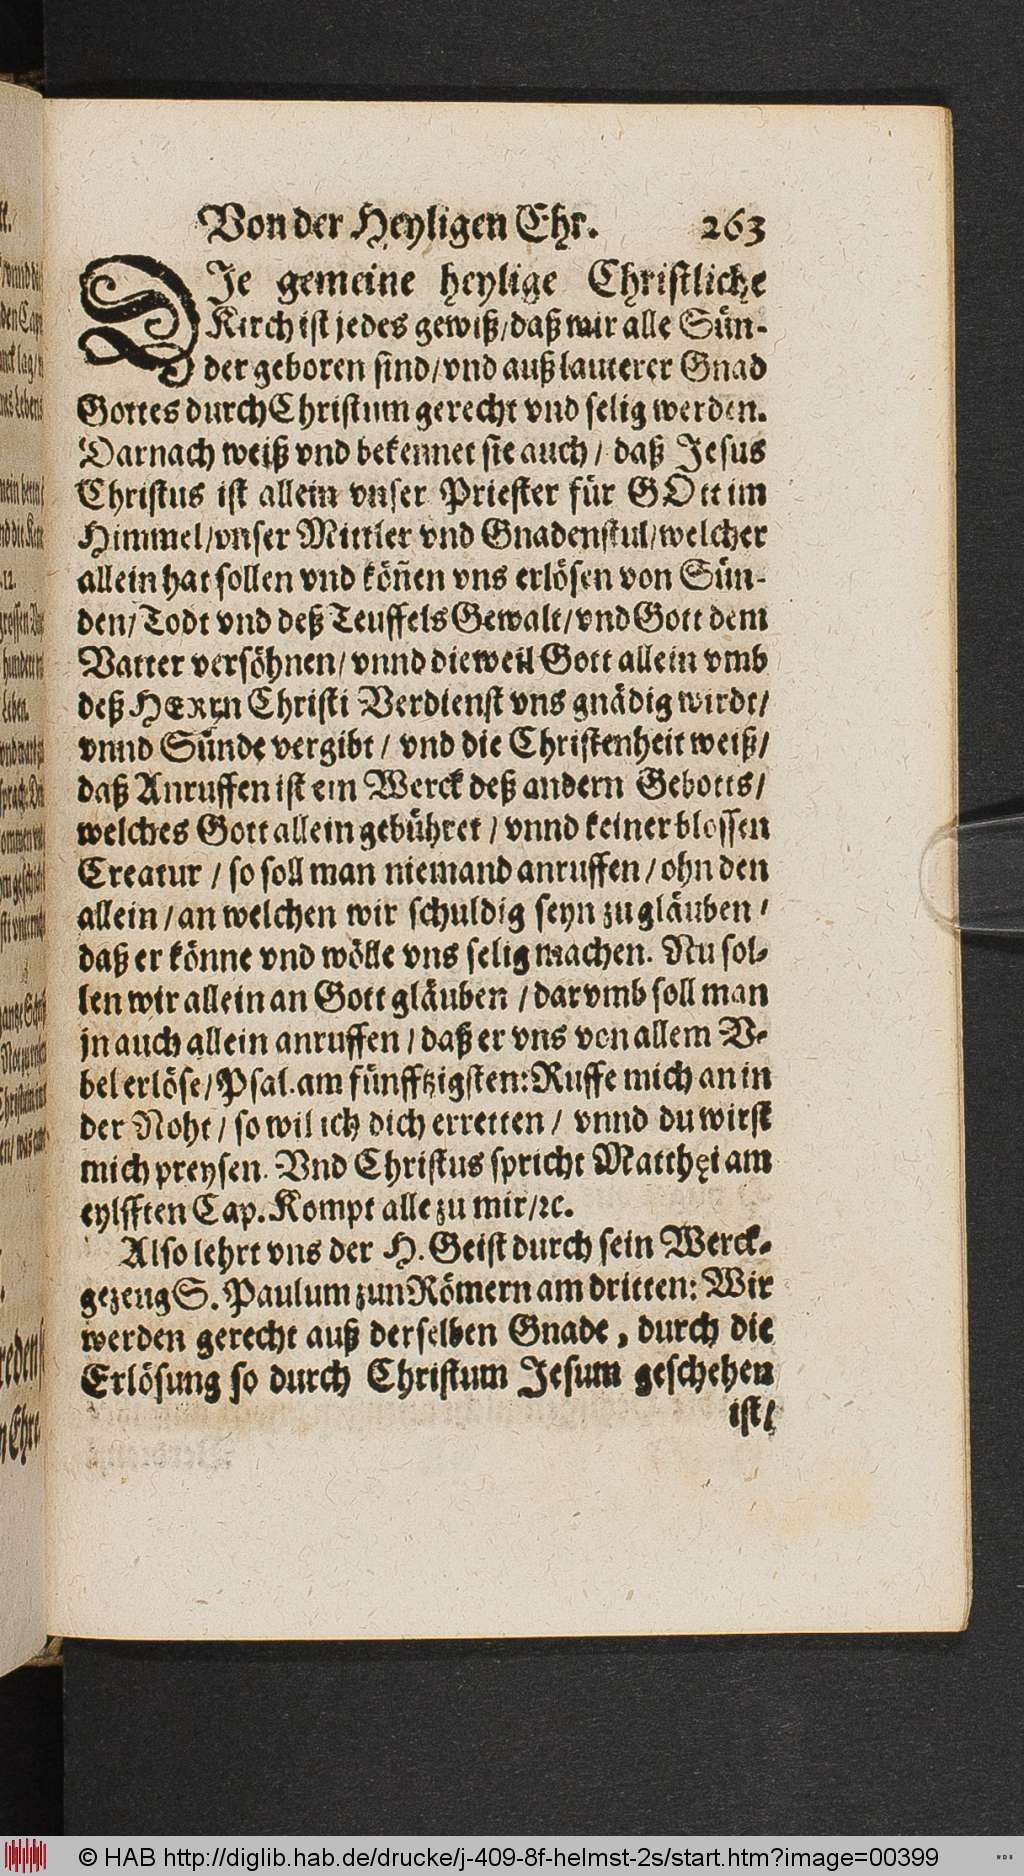 Von der Heyligen Ehr. 263
DJe gemeine heylige Christliche
Kirch ist jedes gewiß/ daß wir alle Sün-
der geboren sind/ vnd auß lauterer Gnad
Gottes durch Christum gerecht vnd selig werden.
Darnach weiß vnd bekennet sie auch/ daß Jesus
Christus ist allein vnser Priester für GOtt im
Himmel/ vnser Mittler vnd Gnadenstul/ welcher
allein hat sollen vnd köñen vns erlösen von Sün-
den/ Todt vnd deß Teuffels Gewalt/ vnd Gott dem
Vatter versöhnen/ vnnd dieweil Gott allein vmb
deß HERRn Christi Verdienst vns gnädig wirdt/
vnnd Sünde vergibt/ vnd die Christenheit weiß/
daß Anruffen ist ein Werck deß andern Gebotts/
welches Gott allein gebühret/ vnnd keiner blossen
Creatur/ so soll man niemand anruffen/ ohn den
allein/ an welchen wir schuldig seyn zu gläuben/
daß er könne vnd wölle vns selig machen. Nu sol-
len wir allein an Gott gläuben/ darvmb soll man
jn auch allein anruffen/ daß er vns von allem V-
bel erlöse/ Psal. am fünfftzigsten: Ruffe mich an in
der Noht/ so wil ich dich erretten/ vnnd du wirst
mich preysen. Vnd Christus spricht Matthęi am
eylfften Cap. Kompt alle zu mir/ ꝛc.
Also lehrt vns der H. Geist durch sein Werck-
gezeug S. Paulum zun Römern am dritten: Wir
werden gerecht auß derselben Gnade, durch die
Erlösung so durch Christum Jesum geschehen
ist/
© HAB http://diglib.hab.de/drucke/j-409-8f-helmst-2s/start.htm?image=00399